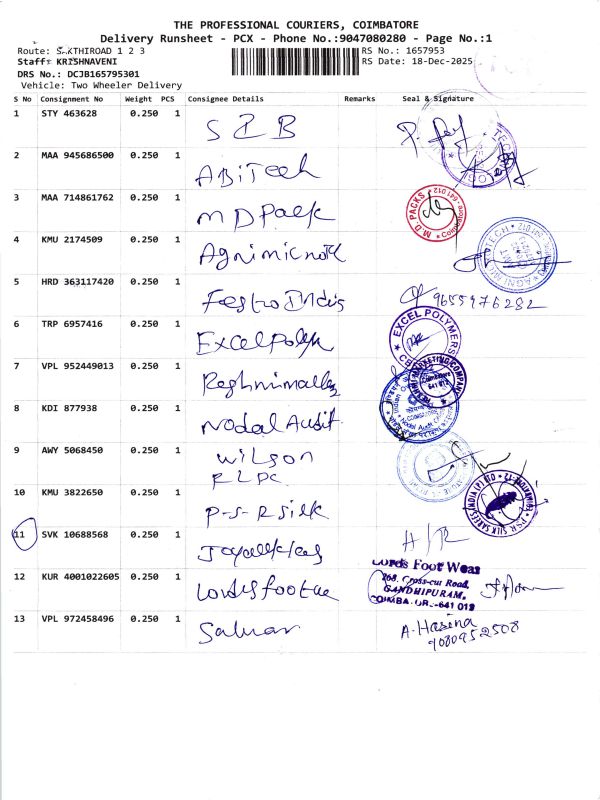 THE PROFESSIONAL COURIERS, COIMBATORE
Delivery Runsheet - PCX - Phone No.:9047080280 - Page No.:1
Route: SAKTHIROAD 1 2 3
RS No.: 1657953
Staff: KRISHNAVENI
RS Date: 18-Dec-2025
DRS No.: DCJB165795301
Vehicle: Two Wheeler Delivery
S No Consignment No Weight PCS Consignee Details Remarks Seal & Signature
1 STY 463628 0.250 1
2 MAA 945686500 0.250 1 ABiTech
3 MAA 714861762 0.250 1 MD Pack M.D. PACKS Coimbatore-641 012
4 KMU 2174509 0.250 1
5 HRD 363117420 0.250 1 9655976282
6 TRP 6957416 0.250 1 EXCEL POLYMERS
7 VPL 952449013 0.250 1 MARKETING COMPANY
8 KDI 877938 0.250 1 Nodal Audit
9 AWY 5068450 0.250 1 Wilson
RLPC
10 KMU 3822650 0.250 1 P-S-R Silk PSR SILK SAREES INDIA (P) LTD
11 SVK 10688568 0.250 1
12 KUR 4001022605 0.250 1 Lords Foot Wear
268, Cross-cut Road,
GANDHIPURAM,
13 VPL 972458496 0.250 1 A. Hasina
9080952508